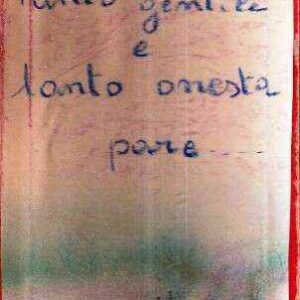 Tanto gentile
e
tanto onesta
pare.....